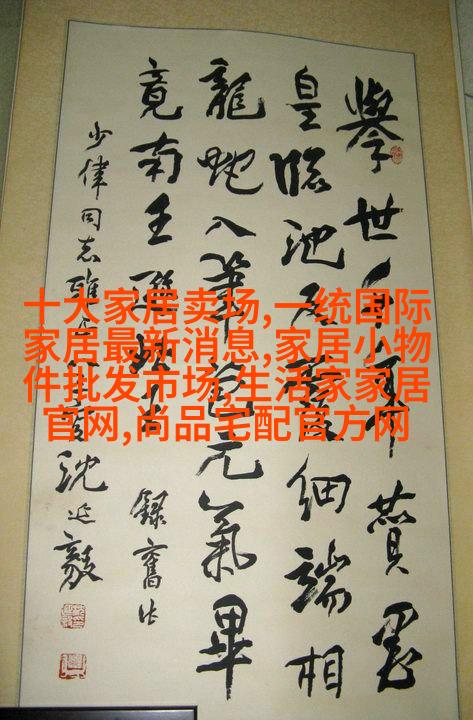 擧世千贊墨
皇臨池居細端相
龍蛇入筆元氣畢
竟南王遜尚 錄舊作
少偉同志雅正 沈延毅
十大家居卖场,一统国际
家居最新消息,家居小物
件批发市场,生活家家居
官网,尚品宅配官方网